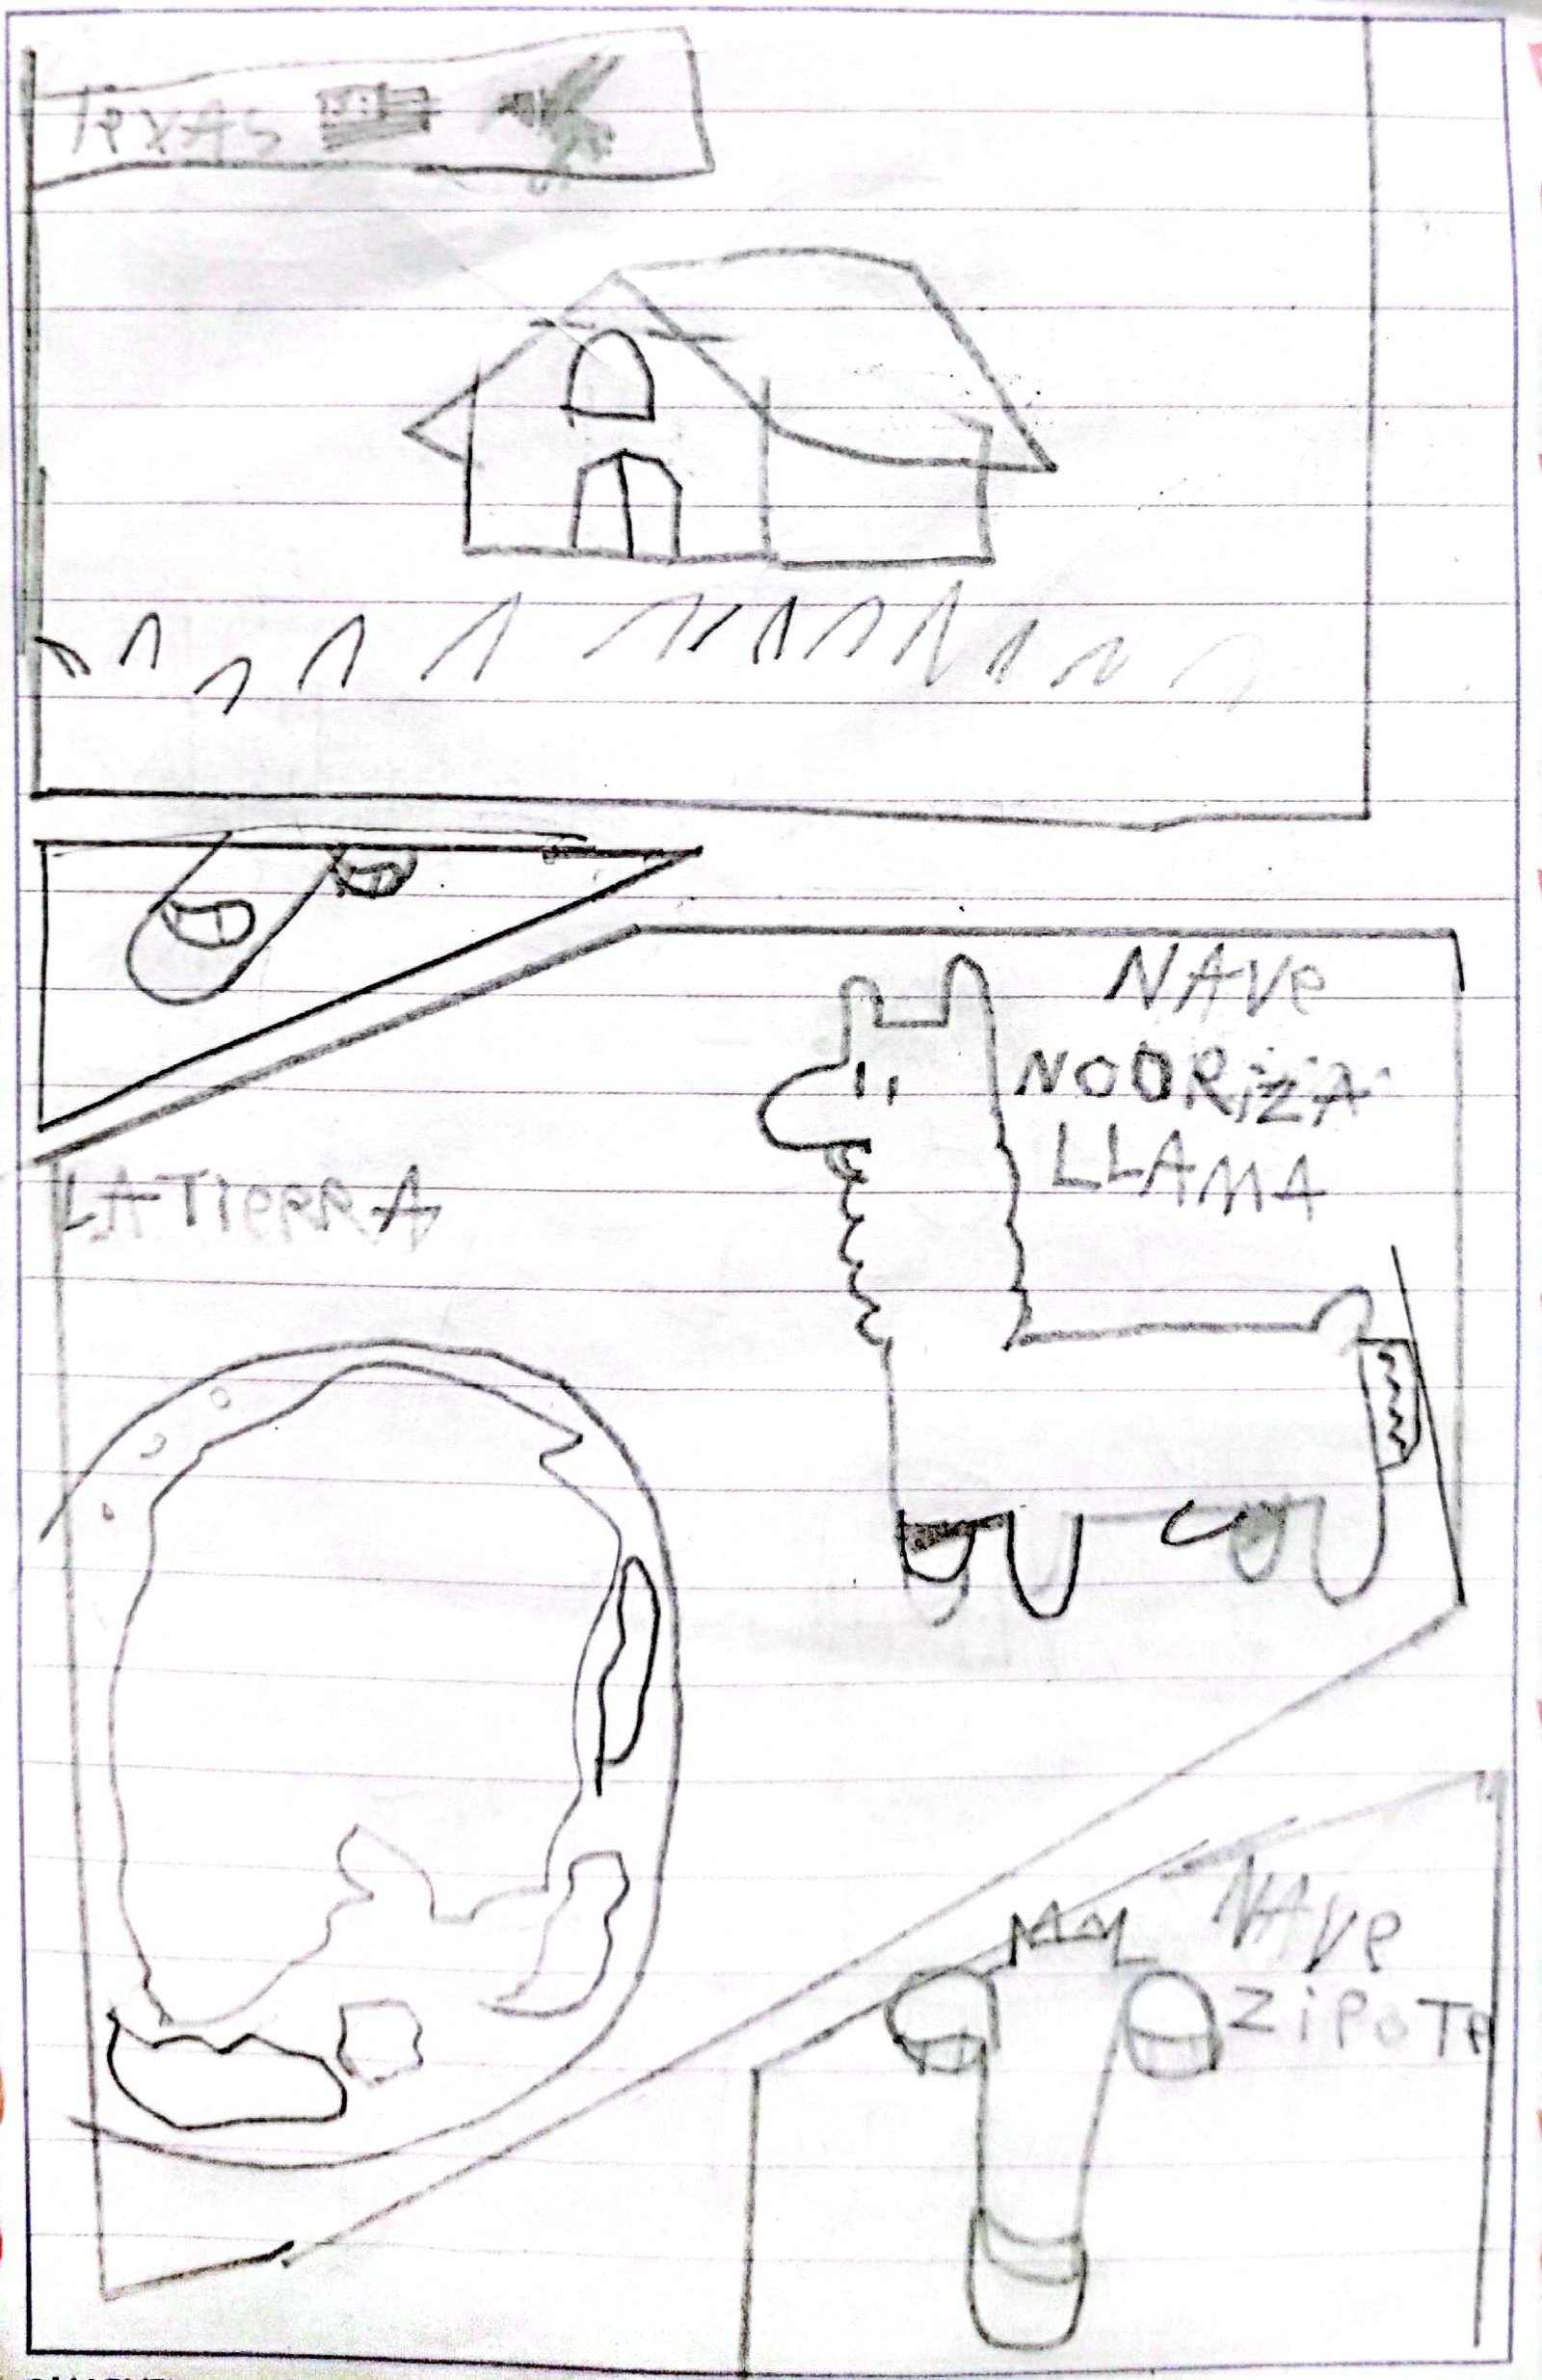 Texas
NAVe
NODRiZA
LLAMA
LA TIeRRA
NAVe
ZiPoTe